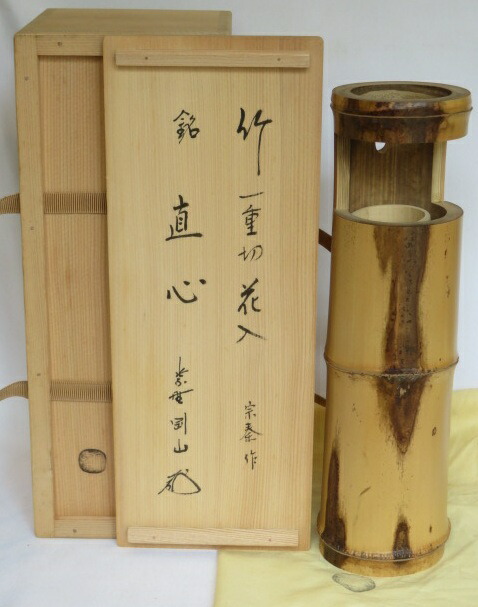 竹一重切花入
宗泰作
銘 直心
紫野剛山